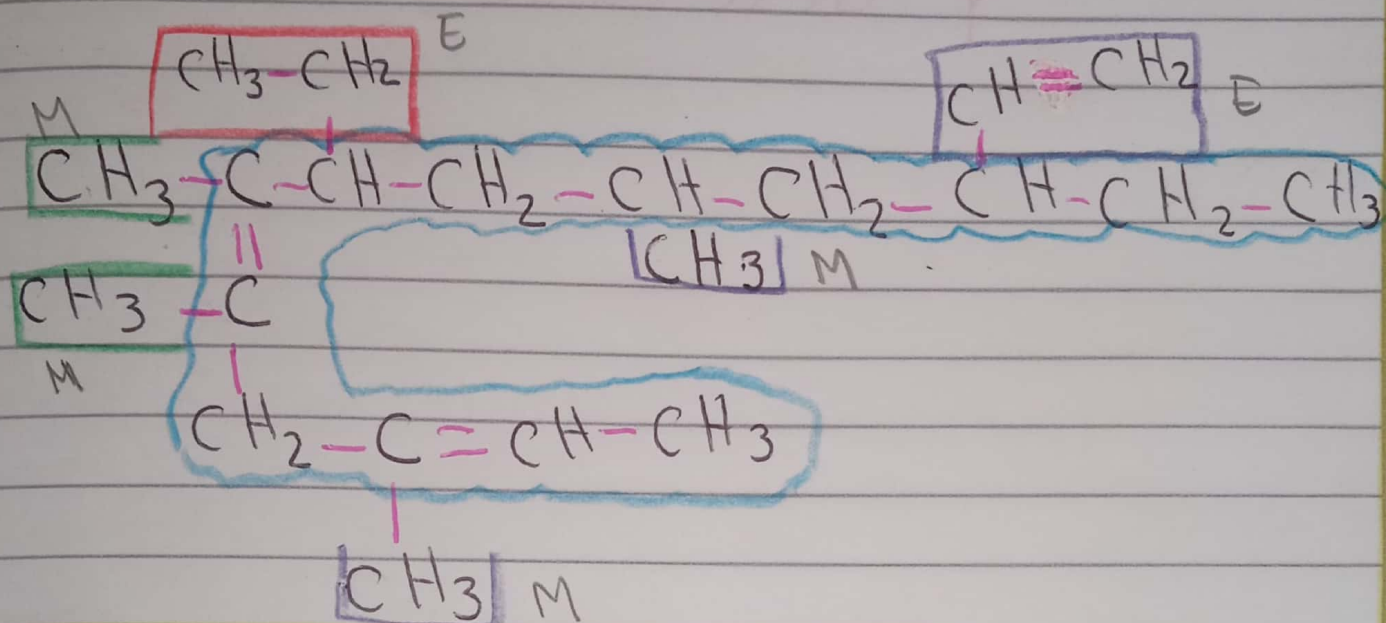 E
CH3-CH2
CH=CH2 E
M
CH3-C-CH-CH2-CH-CH2-CH-CH2-CH3
||
CH3 M
CH3-C
M
CH2-C=CH-CH3
CH3 M